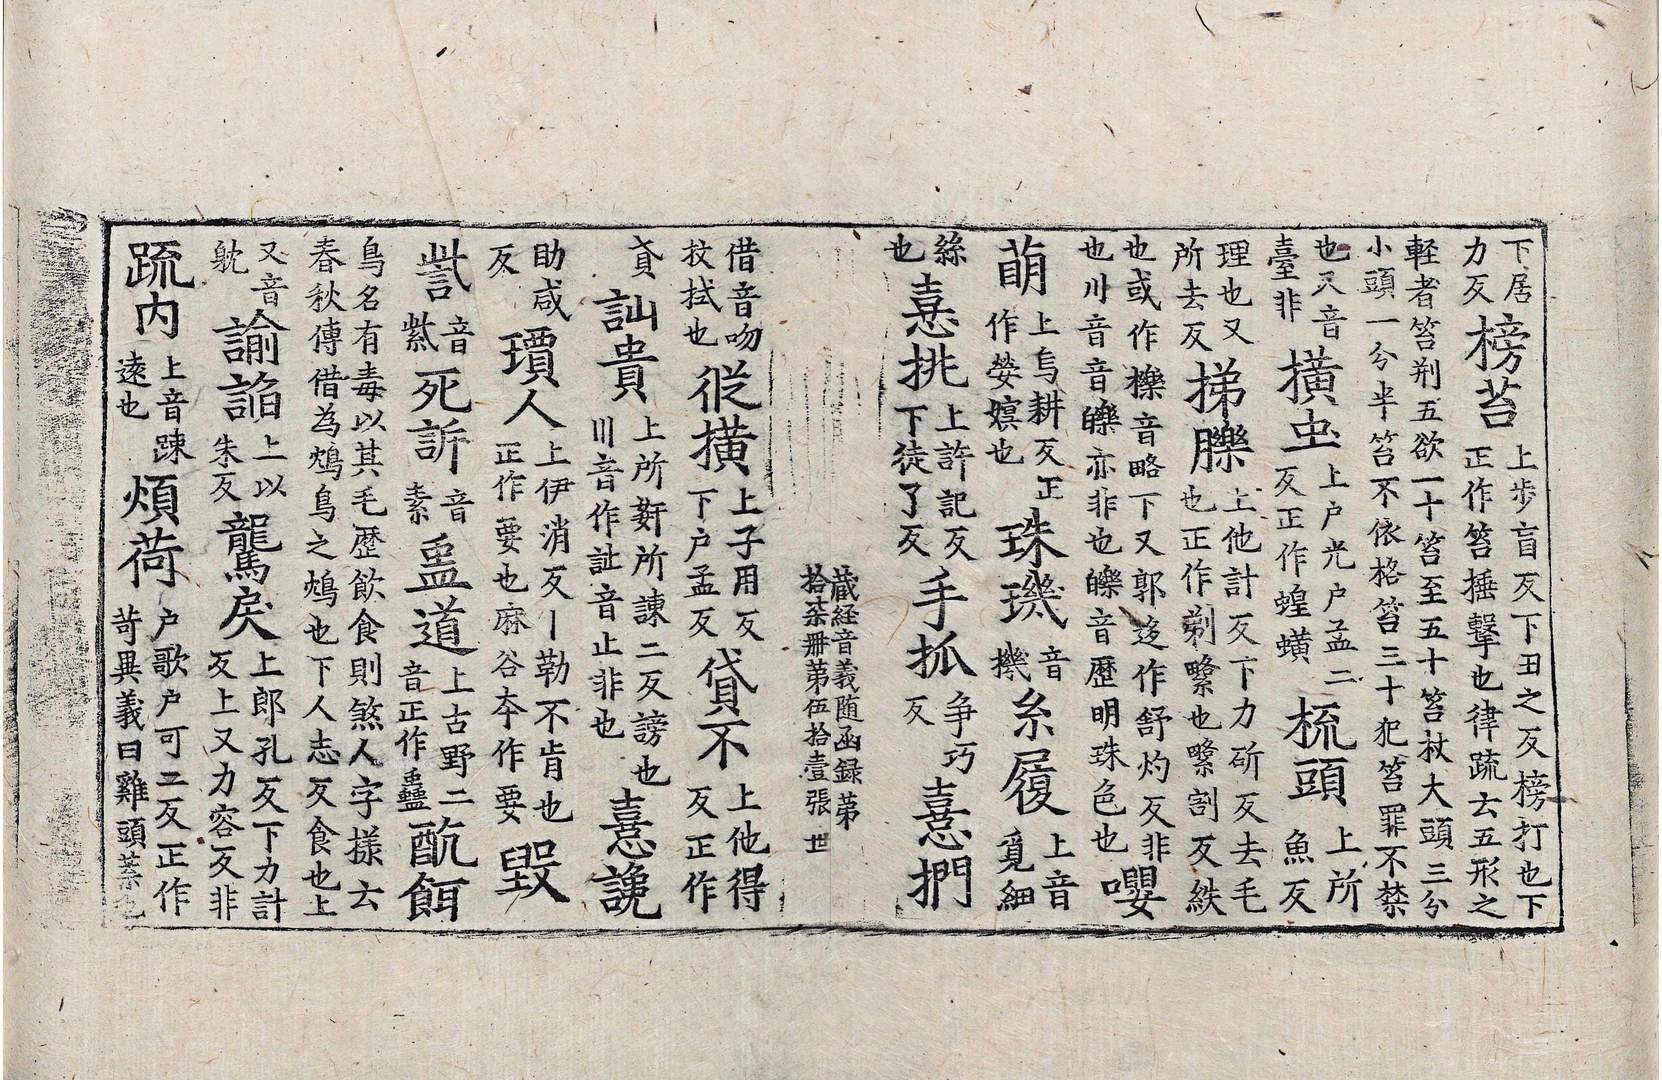 下居力反榜苔上步盲反下丑之反榜打也下正作笞捶擊也律䟽去五形之
輕者笞荆五欲一十笞至五十笞杖大頭三分小頭一分半笞不依格笞三十犯笞罪不禁
也又音臺非橫虫上户光户孟二反正作蝗蟥梳頭上所魚反
理也又所去反挮䑏上他計反下力斫反去毛也正作剃䋛也䋛割反紩
也或作擽音略下又郭迻作舒灼反非也川音音皪亦非也皪音歷明珠色也嚶
萠上烏耕反正作嫈嫇也珠璣音機糸履上音覓細
絲也憙挑上許記反下徒了反手抓争巧反憙捫
藏经音義随函録苐拾柒册苐伍拾壹張 世
借音吻抆拭也從撗上子用反下户孟反貸不上他得反正作
貣訕貴上所姧所諫二反謗也川音作訨音止非也憙讒
助咸反瓄人上伊消反丨勒不肯也正作要也麻谷夲作要毀
訾音紫死訴音素䖝道上古野二音正作蠱酖餌
鳥名有毒以其毛歷飲食則煞人字樣云春秋傳借為鴆鳥之鴆也下人志反食也上
又音躭諭諂上以朱反龍馬戾上郎孔反下力計反上又力容反非
䟽内上音踈遠也煩荷户歌户可二反正作苛異義曰雞頭莁也